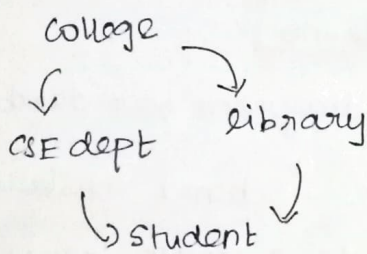 collage
CSE dept library
student